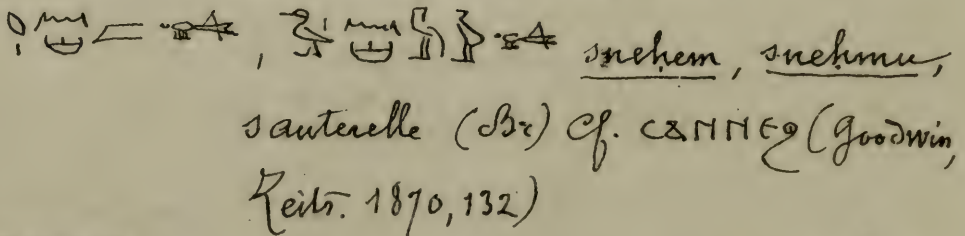 , snehem, snehmu,
sauterelle (Br) Cf. ⲥⲁⲛⲛⲉϩ (Goodwin,
Zeits. 1870, 132)